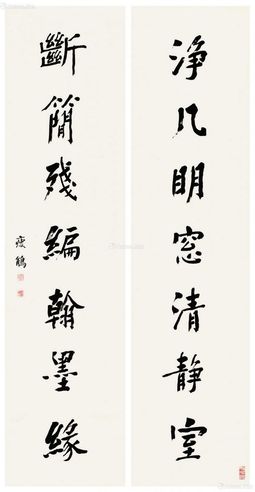 净几明窗清静室
斷簡殘編翰墨緣
瘦鵑